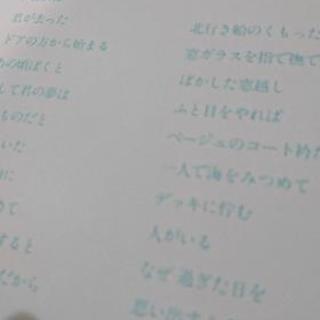 君が去った
ドアの方から始まる
の頃ぼくと
して君の夢は
ものだと
いた
に
めて
すると
だから
北行き船のくもった
窓ガラスを指で撫で
ぼかした窓越し
ふと目をやれば
ベージュのコート衿
一人で海をみつめて
デッキに佇む
人がいる
なぜ過ぎた日を
思い出す